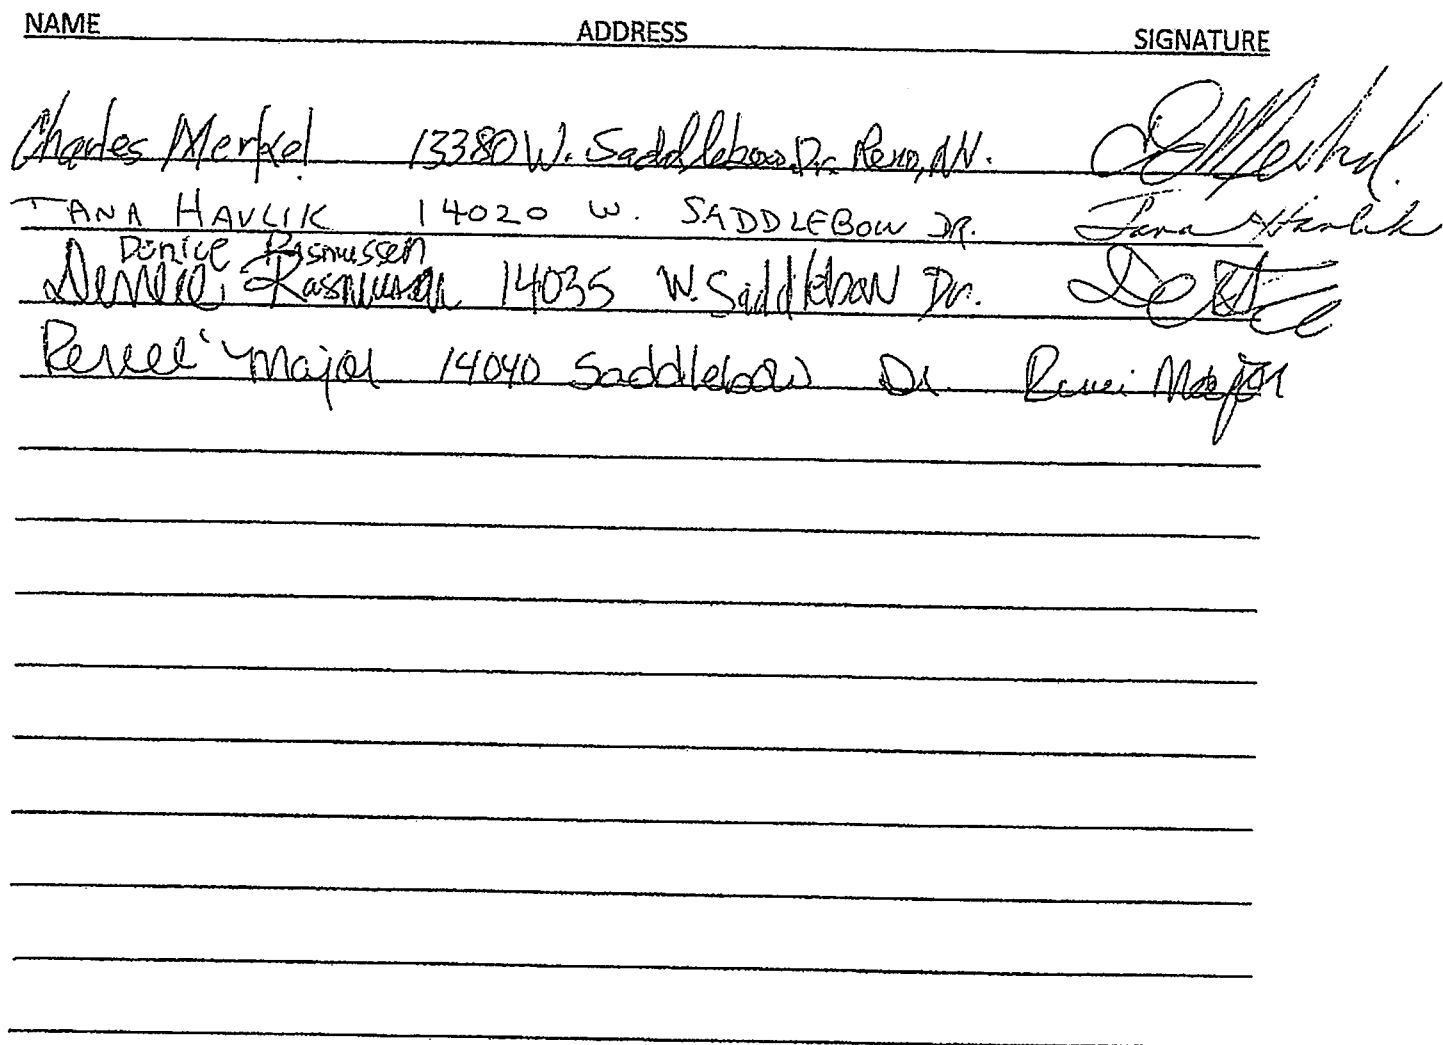 NAME ADDRESS SIGNATURE
Charles Merkel 13380 W. Saddlebow Dr. Reno, NV. Merkel.
TANA HAVLIK 14020 W. SADDLEBOW DR. Tana Havlik
Denice Rasmussen
Denice Rasmussen 14035 W. Saddlebow Dr.
Renee Major 14040 Saddlebow Dr. Renee Major